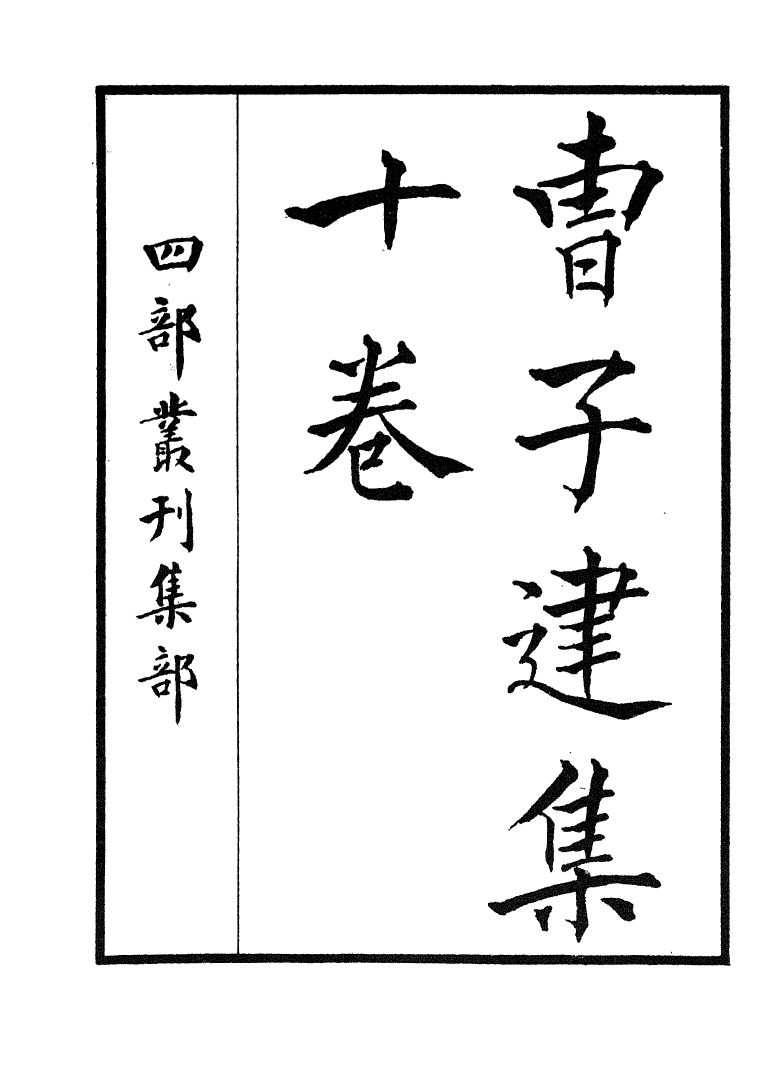 曹子建集
十卷
四部叢刊集部